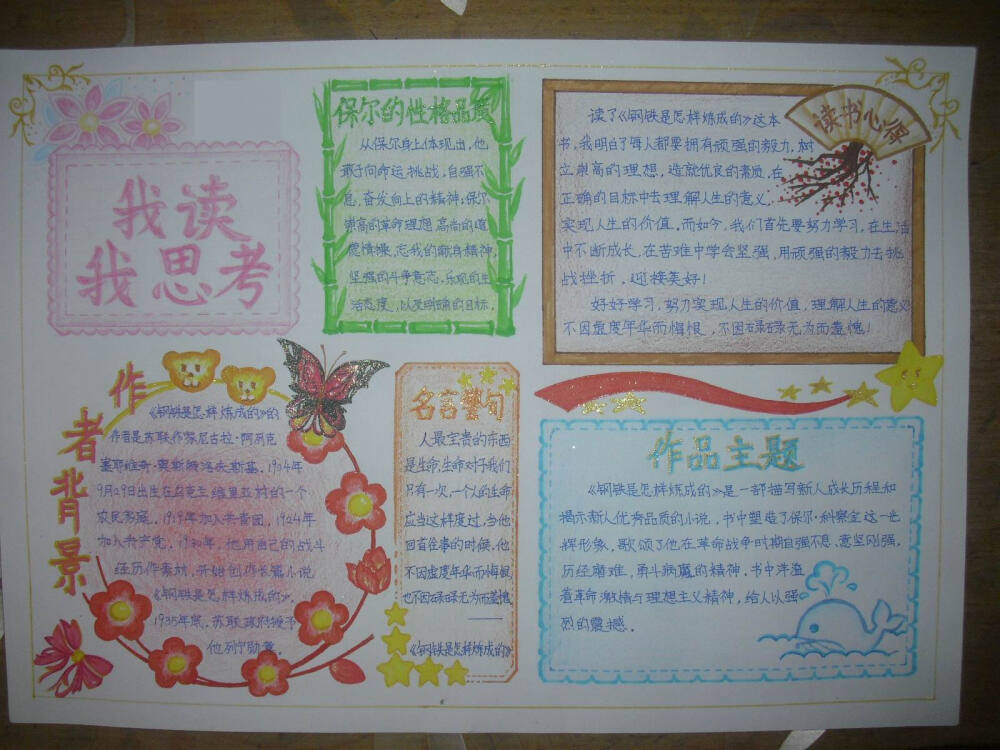 我读
我思考
保尔的性格品质
从保尔身上体现出,他
敢于向命运挑战,自强不
息,奋发向上的精神;保尔
崇高的革命理想,高尚的道
德情操,忘我的献身精神,
坚强的斗争意志,乐观的生
活态度,以及明确的目标。
读书心得
读了《钢铁是怎样炼成的》这本
书,我明白了每人都要拥有顽强的毅力,树
立崇高的理想,造就优良的素质,在
正确的目标中去理解人生的意义,
实现人生的价值,而如今,我们首先要努力学习,在生活
中不断成长,在苦难中学会坚强,用顽强的毅力去挑
战挫折,迎接美好!
好好学习,努力实现人生的价值,理解人生的意义
不因虚度年华而悔恨,不因碌碌无为而羞愧!
作者背景
《钢铁是怎样炼成的》的
作者是苏联作家尼古拉·阿列克
塞耶维奇·奥斯特洛夫斯基。1904年
9月29日出生在乌克兰维里亚村的一个
农民家庭。1919年加入共青团,1924年
加入共产党。1930年,他用自己的战斗
经历作素材,开始创作长篇小说
《钢铁是怎样炼成的》。
1935年底,苏联政府授予
他列宁勋章。
名言警句
人最宝贵的东西
是生命,生命对于我们
只有一次,一个人的生命
应当这样度过,当他
回首往事的时候,他
不因虚度年华而悔恨
也不因碌碌无为而羞愧
——
《钢铁是怎样炼成的》
作品主题
《钢铁是怎样炼成的》是一部描写新人成长历程和
揭示新人优秀品质的小说,书中塑造了保尔·柯察金这一光
辉形象,歌颂了他在革命战争时期自强不息,意坚刚强,
历经磨难,勇斗病魔的精神,书中洋溢
着革命激情与理想主义精神,给人以强
烈的震撼。